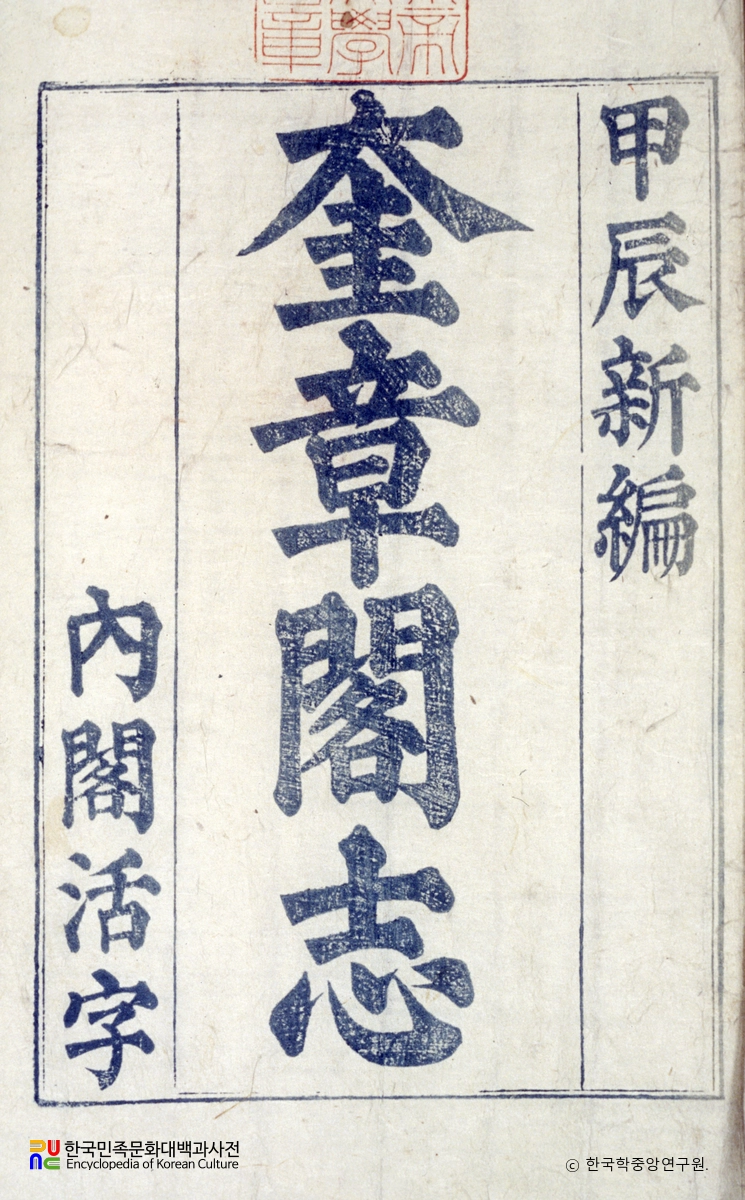 甲辰新編
奎章閣志
內閣活字
한국민족문화대백과사전
Encyclopedia of Korean Culture
© 한국학중앙연구원.